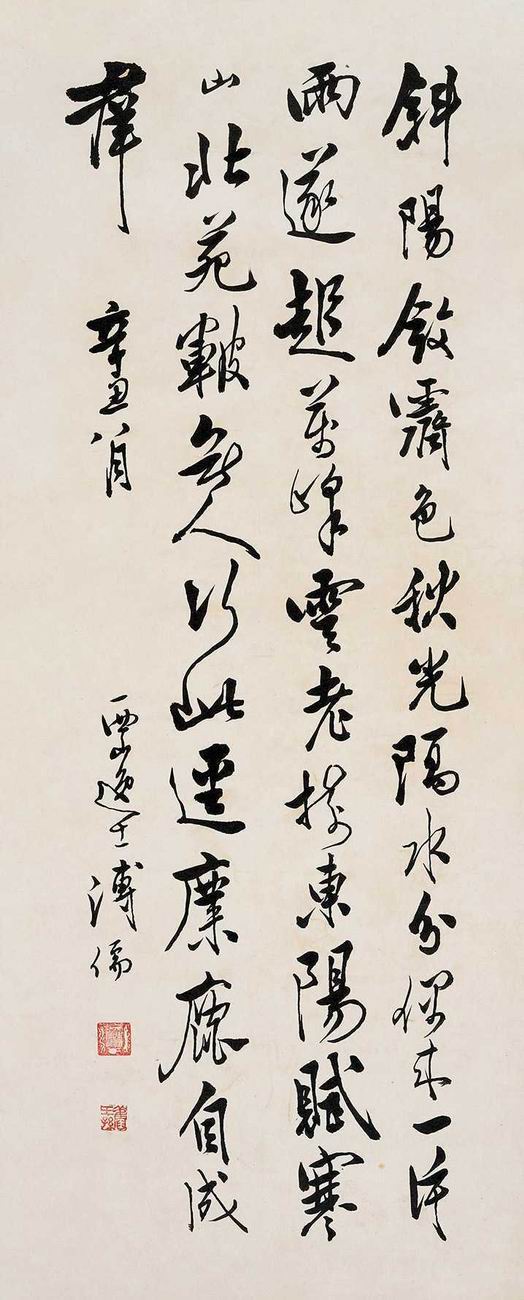 斜陽斂霽色秋光隔水分偶来一片
雨遂起萬峯雲老樹東陽賦寒
山北苑皴無人行此逕麋鹿自成
羣
辛丑八月
西山逸士溥儒